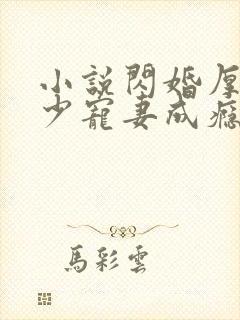 小說閃婚厚
少寵妻成癮
馬彩雲